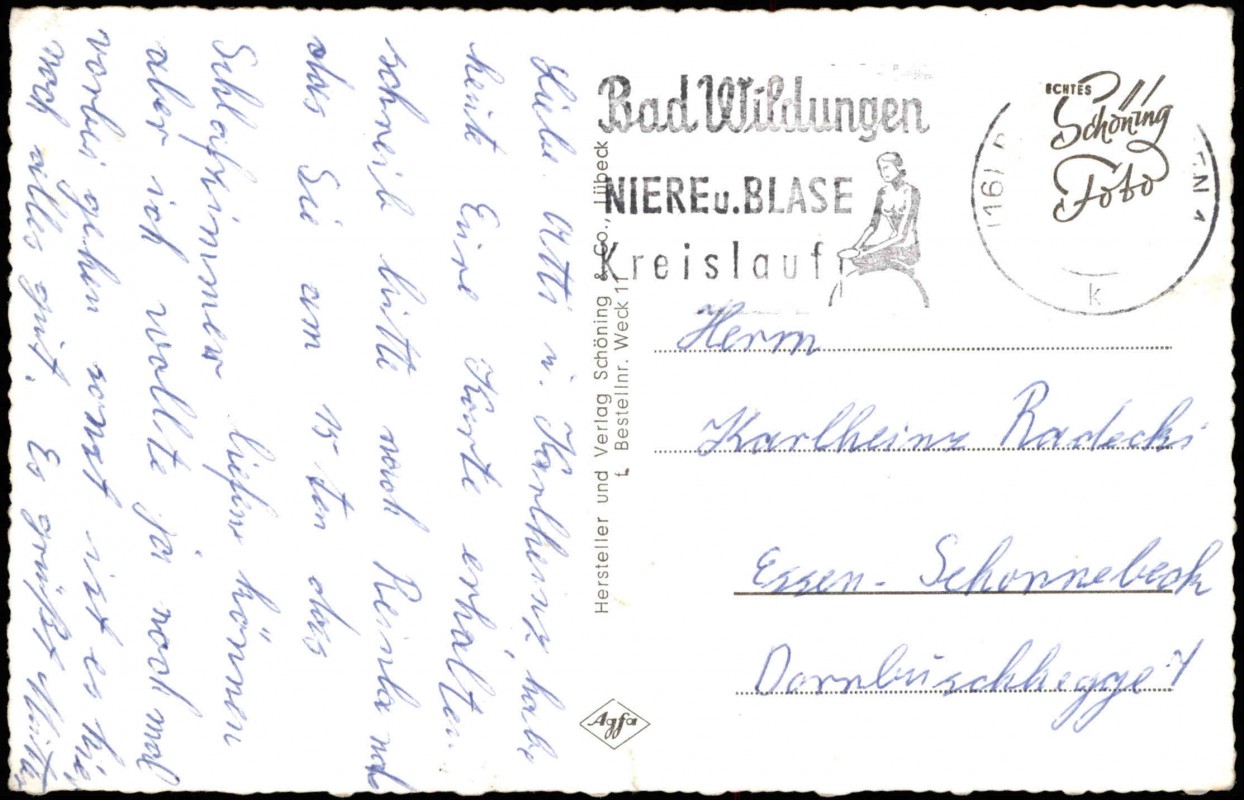 Liebe Otti u. Karlheinz, habe
heut Eure Karte erhalten.
schreib bitte nach
das Sie am 15 ten das
Schlafzimmer liefern können
aber ich wollte ja noch mal
vorbei gehen sonst ist es hier
noch alles gut. Es grüßt
Hersteller und Verlag Schöning & Co., Lübeck
Bestellnr. Weck 11
Agfa
Bad Wildungen
NIERE u. BLASE
Kreislauf
(16)
EN 1
k
ECHTES
Schöning
Foto
Herrn
Karlheinz Radecki
Essen-Schonnebeck
Dornbuschhegge 7